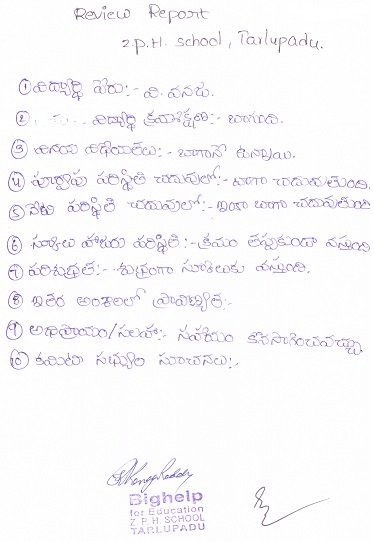 Review Report
Z.P.H. school, Tarlupadu.
① విద్యార్థి పేరు:- వి. వనజ.
② విద్యార్థి క్రమశిక్షణ:- బాగుంది.
③ వినయ విధేయతలు:- బాగానే ఉన్నాయి.
④ పూర్వపు పరిస్థితి చదువులో:- బాగా చదువుతుంది.
⑤ నేటి పరిస్థితి చదువులో:- ఇంకా బాగా చదువుతుంది
⑥ స్కూలు హాజరు పరిస్థితి:- క్రమం తప్పకుండా వస్తుంది
⑦ పరిశుభ్రత:- శుభ్రంగా స్కూలుకు వస్తుంది.
⑧ ఇతర అంశాలలో ప్రావీణ్యత:-
⑨ అభిప్రాయం/సలహా:- సహాయం కొనసాగించవచ్చు.
⑩ కమిటీ సభ్యుల సూచనలు:-
Bighelp
for Education
Z. P. H. SCHOOL
TARLUPADU